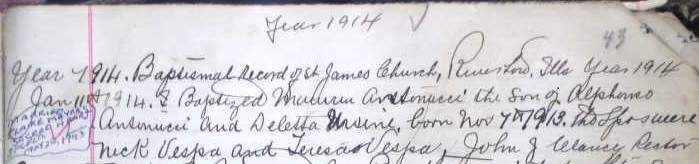 Year 1914
43
Year 1914. Baptismal Record of St James Church, Riverton, Ills Year 1914
Jan 11th 1914. I Baptized Antonucci the Son of Alphonso
Antonucci and Deletta Ursine, born Nov 7th 1913. The Spo. were
Nick Vespa and Teresa Vespa, John J Clancy Rector
MARRIED
CLARA